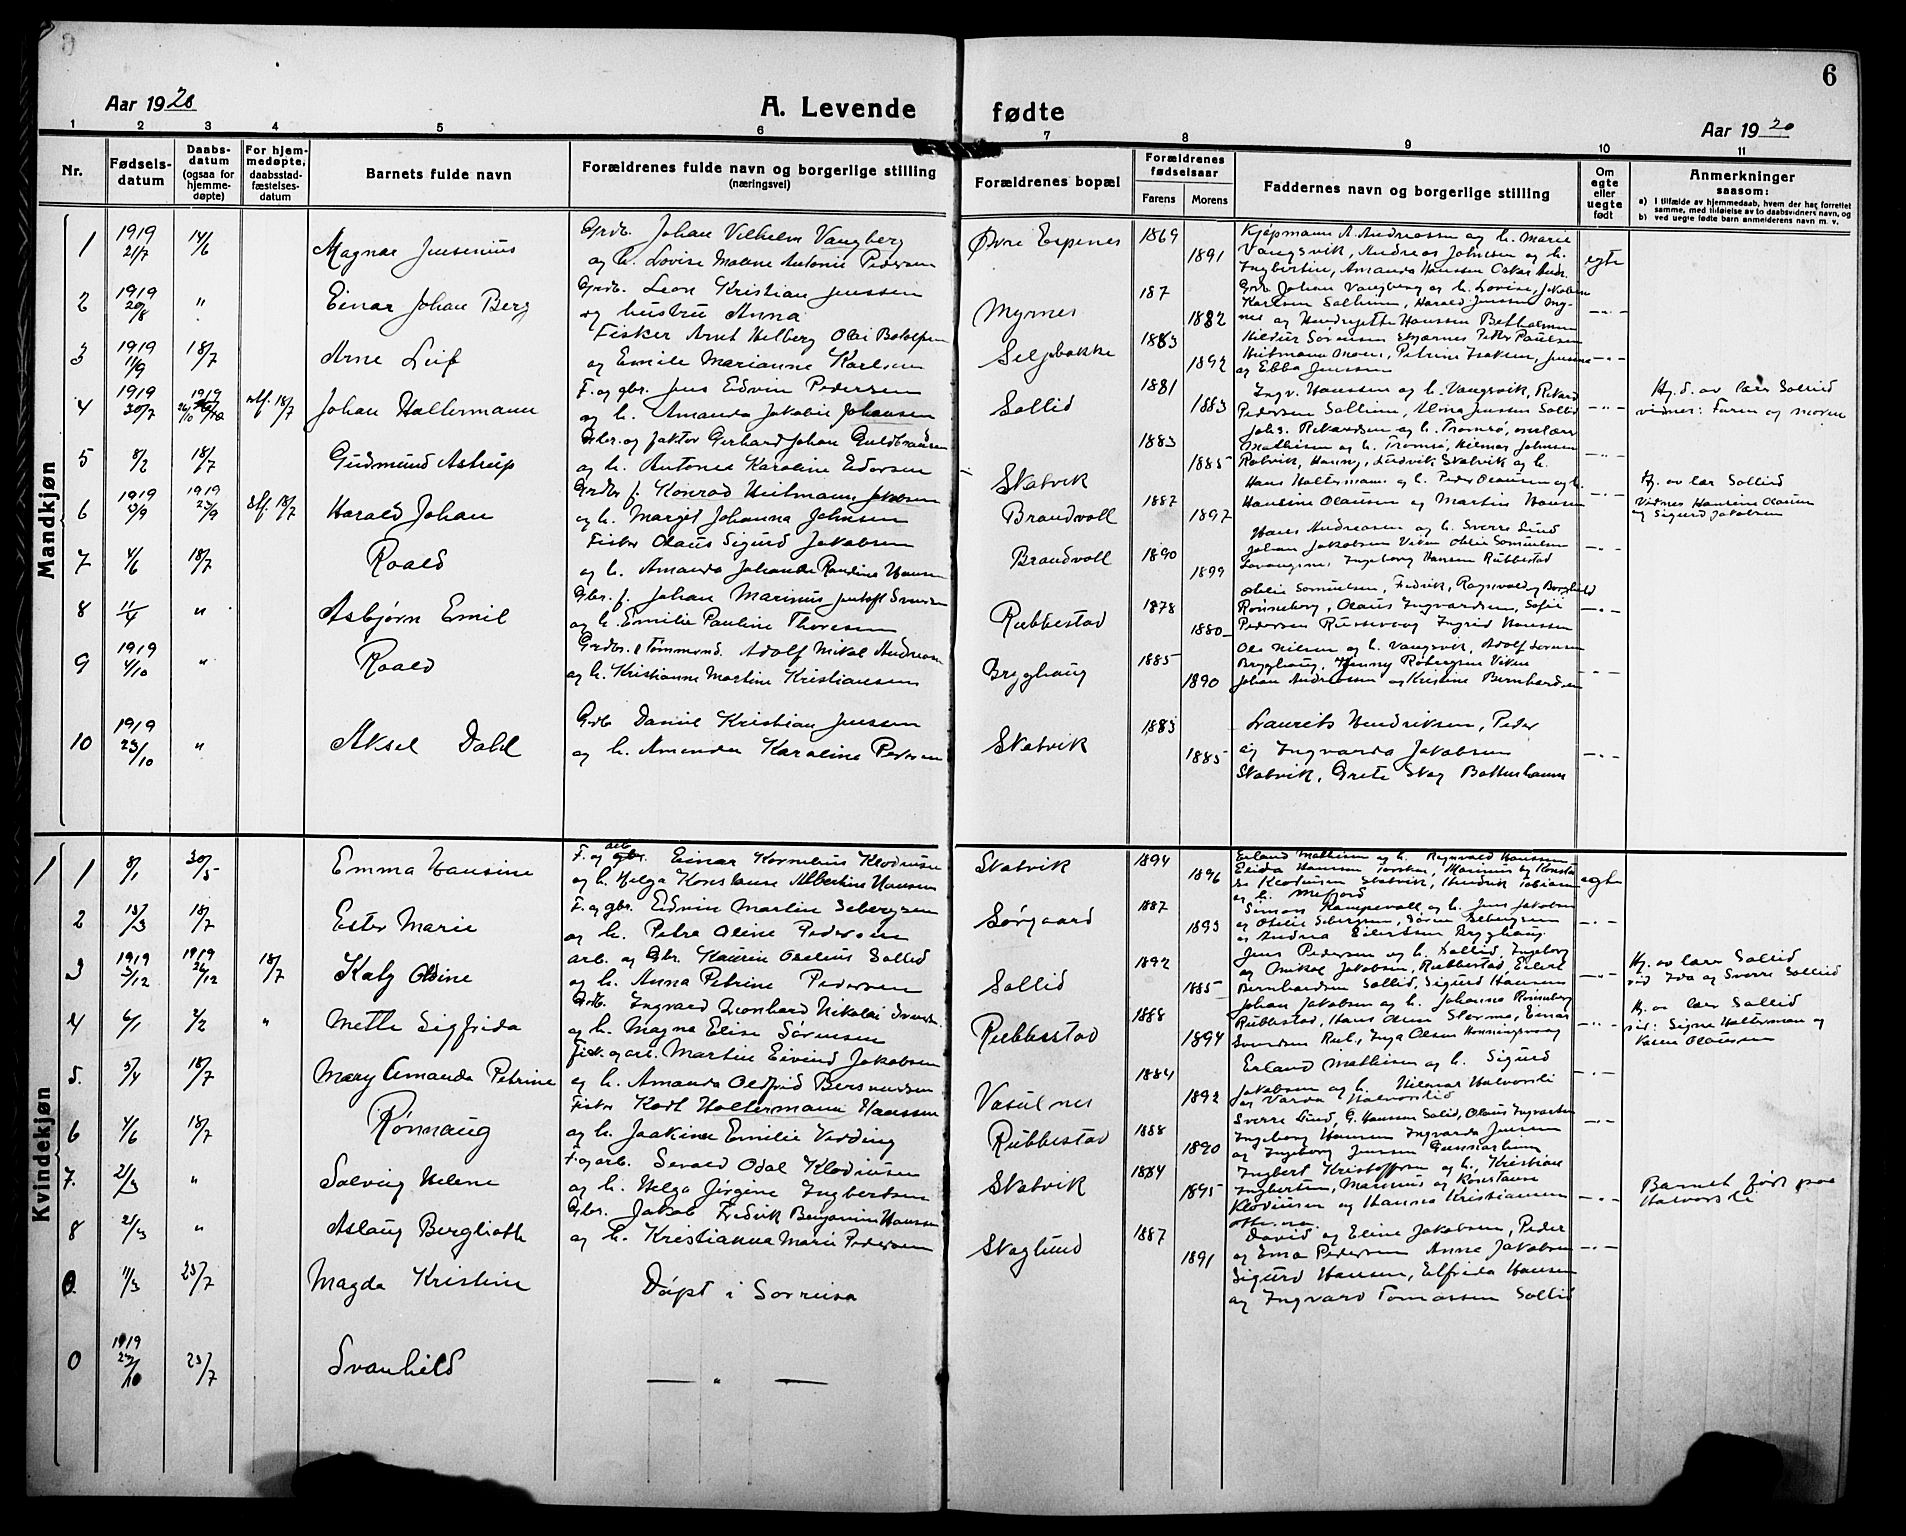 6
Aar 1920
A. Levende fødte
Aar 1920
1 2 3 4 5 6 7 8 9 10 11
Nr.
Fødsels-
datum
Daabs-
datum
(ogsaa for
hjemme-
døpte)
For hjem-
medøpte,
daabsstad-
fæstelses-
datum
Barnets fulde navn
Forældrenes fulde navn og borgerlige stilling
(næringsvei)
Forældrenes bopæl
Forældrenes
fødselsaar
Farens Morens
Faddernes navn og borgerlige stilling
Om
egte
eller
uegte
født
Anmerkninger
saasom:
a) I tilfælde av hjemmedaab, hvem der har forrettet
samme, med tilføielse av to daabsvidners navn, og
b) ved uegte fødte barn anmelderens navn m. v.
Mandkjøn
1 1919 21/7 14/6 Magnar Jensenius
Grdb. Johan Vilhelm Vangberg
og h. Lovise Malene Antonie Pedersen
Øvre Espenes 1869 1891
Kjøpmann A. Andreassen og h. Marie
Vangsvik, Andreas Johnsen og h.
Ingbertine, Amanda Hanssen Oskar Andr.
egte
2 1919 20/8 " Einar Johan Berg
Grdb. Leon Kristian Jenssen
og hustru Anna
Myrnes 187 1882
Grdb. Johan Vangberg og h. Lovise, Jakobine
Karlsen Solheim, Harald Jenssen Myr-
nes og Hendrijette Hanssen
-"-
3 1919 11/9 18/7 Arne Leif
Fisker Arnt Helberg Olai
og Emilie Marianne Karlsen
Seljebakke 1883 1892
Hildur Sørensen Skjærnes Peter Paulsen
og Ebba Jenssen
-"-
4 1919 30/7 1919 26/10 stf. 18/7 Johan Haltermann
F. og gbr. Jens Edvin Pedersen
og h. Amanda Jakobie Johansen
Sollid 1881 1883
Ingv. Hanssen og h. Vangsvik, Rikard
Pedersen Sollien, Alma Jenssen Sollid
-"-
Hj. d. av lær Sollid
vidner: Faren og moren
5 8/2 18/7 Gudmund Astrup
Gbr. og faktor Gerhard Johan Guldbrandsen
og h. Antonie Karoline Edorsen
Skatvik 1883 1885
Johs. Rikardsen og h. Tromsø,
Mathisen og h. Tromsø, Hilmar Johnsen
Rotvik, Hanny, Ludvik Skatvik og h.
-"-
6 1919 13/9 1919 23/9 Stf. 18/7 Harald Johan
Grdbr f. Konrad Heitmann Jakobsen
og h. Margit Johanna Johnsen
Brandvoll 1887 1897
Hans Haltermann og h. Peder Olausen og h.
Hansine Olausen og Martin Hansen
-"-
Hj. av lær Sollied
Vidnes Hansine Olausen
og Sigurd Jakobsen
7 4/6 18/7 Roald
Fisker Olaus Sigurd Jakobsen
og h. Amanda Johanda Randine Hansen
Brandvoll 1890 1899
Hans Andreasen og h. Sverre Lund
Johan Jakobsen Viken Otelie Samuelsen
Ingeborg Hansen Rubbestad
-"-
8 11/4 " Asbjørn Emil
Gbr. f. Johan Marinus Svendsen
og h. Emilie Pauline Thoresen
Rubbestad 1878 1880
Otelie Samuelsen, Fredrik, Ragnvald og Borghild
Rønneberg, Olaus Ingvardsen, Sofie
Pedersen Russevaag Ingrid Hanssen
-"-
9 1919 4/10 " Roald
Grdbr. & Tømmermd. Adolf Mikal Andreasen
og h. Kristianne Martine Kristiansen
Bryghaug 1885 1890
Ole Nilsen og h. Vangsvik, Adolf Sørensen
Bryghaug, Jenny Robergsen Viken
Johan Andreassen og Kristine Bernhardsen
-"-
10 1919 23/10 " Aksel Dahl
Grdb Daniel Kristian Jenssen
og h. Amanda Karoline Pedersen
Skatvik 1883 1885
Laurits Hendriksen, Peder
og Ingvarda Jakobsen
Skatvik, Grete Skog Bottenhavn
-"-
Kvindekjøn
1 1 8/1 30/5 Emma Hansine
F. og arb. gbr. Einar Kornelius Klodiusen
og h. Helga Konstanse Albertine Hansen
Skatvik 1894 1896
Erland Mathisen og h. Ragnvald Hanssen
Elida Hanssen Torsken, Marinius og Konstan
se Klodiusen Skatvik, Hendrik Tobiasen
og h. Mefjord
egte
2 13/3 18/7 Ester Marie
F. og gbr. Edvin Martin Sebergsen
og h. Petra Oline Pedersen
Sørgaard 1887 1893
Simon Kampevoll og h. Jens Jakobsen
og Otelie Sebergsen, Søren Sebergsen
og Andrea Eilertsen Bryghaug
-"-
3 1919 3/12 1919 26/12 18/7 Katy Odine
Arb. og Gbr. Kaurin Oselius Sollid
og h. Anna Petrine Pedersen
Sollid 1892 1885
Jens Pedersen og h. Sollid, Ingeborg
og Mikal Jakobsen, Rubbestad, Eilert
Bernhardsen Sollid, Sigurd Hansen
-"-
Hj. av lærer Sollid
vid Ida og Sverre Sollid
4 6/1 2/2 " Mette Sigfrida
Grdb. Ingvard Leonhard Nikolai Svends.
og h. Magna Elise Sørensen
Rubbestad 1888 1894
Johan Jakobsen og h. Johanna Rønneberg
Rubbestad, Hans Olsen Slorma, Einar
Svendsen Rub., Inga Olsen Honningsvaag
-"-
Hj. av lær Sollid
vid: Signe Halterman og
Vasen Olausen
5. 3/4 18/7 Mary Amanda Petrine
Fisk. og arb. Martin Eivind Jakobsen
og h. Amanda Oldfrid Bersvendsen
Vasulnes 1884 1892
Erland Mathisen og h. Sigurd
Jakobsen og h. Hilmar Halvorsli
og Varda Halvorslid
-"-
6 4/6 18/7 Rønnaug
Fisker Karl Haltermann Hanssen
og h. Joakine Emilie Verding
Rubbestad 1888 1890
Sverre Lund, G. Hanssen Solid, Olaus Ingvartsen
Ingeborg Hansen Ingvarda Jensen
og Ingeborg Jensen Gunnarheim
-"-
7. 21/3 " Solveig Helene
F. og arb. Sevald Odal Klodiusen
og h. Helga Jørgine Ingbertsen
Skatvik 1884 1895
Ingbert Kristoffersen og h., Kristian
Ingbertsen, Marinius og Konstanse
Klodiusen og Hanna Kristiansen
-"-
Barnet født paa
Halvorsli
8 21/3 " Aslaug Bergliotte
Gbr. Jakob Fredrik Benjamin Hanssen
og h. Kristianna Marie Pedersen
Skoglund 1887 1891
David og Eline Jakobsen, Peder
og Ema Pedersen Anna Jakobsen
Sigurd Hansen, Elfrida Hansen
og Ingvard Tomassen Sollid
-"-
0. 11/3 23/7 Magda Kristine
Døpt i Sørreisa
0 1919 23/10 23/7 Svanhild
— " —